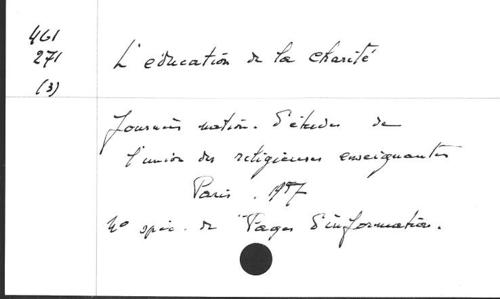 461
271
(3)
L'éducation de la charité
Journées nation. d'études de
l'union des religieuses enseignantes
Paris. 1957
N° spéc. de "Pages d'information.